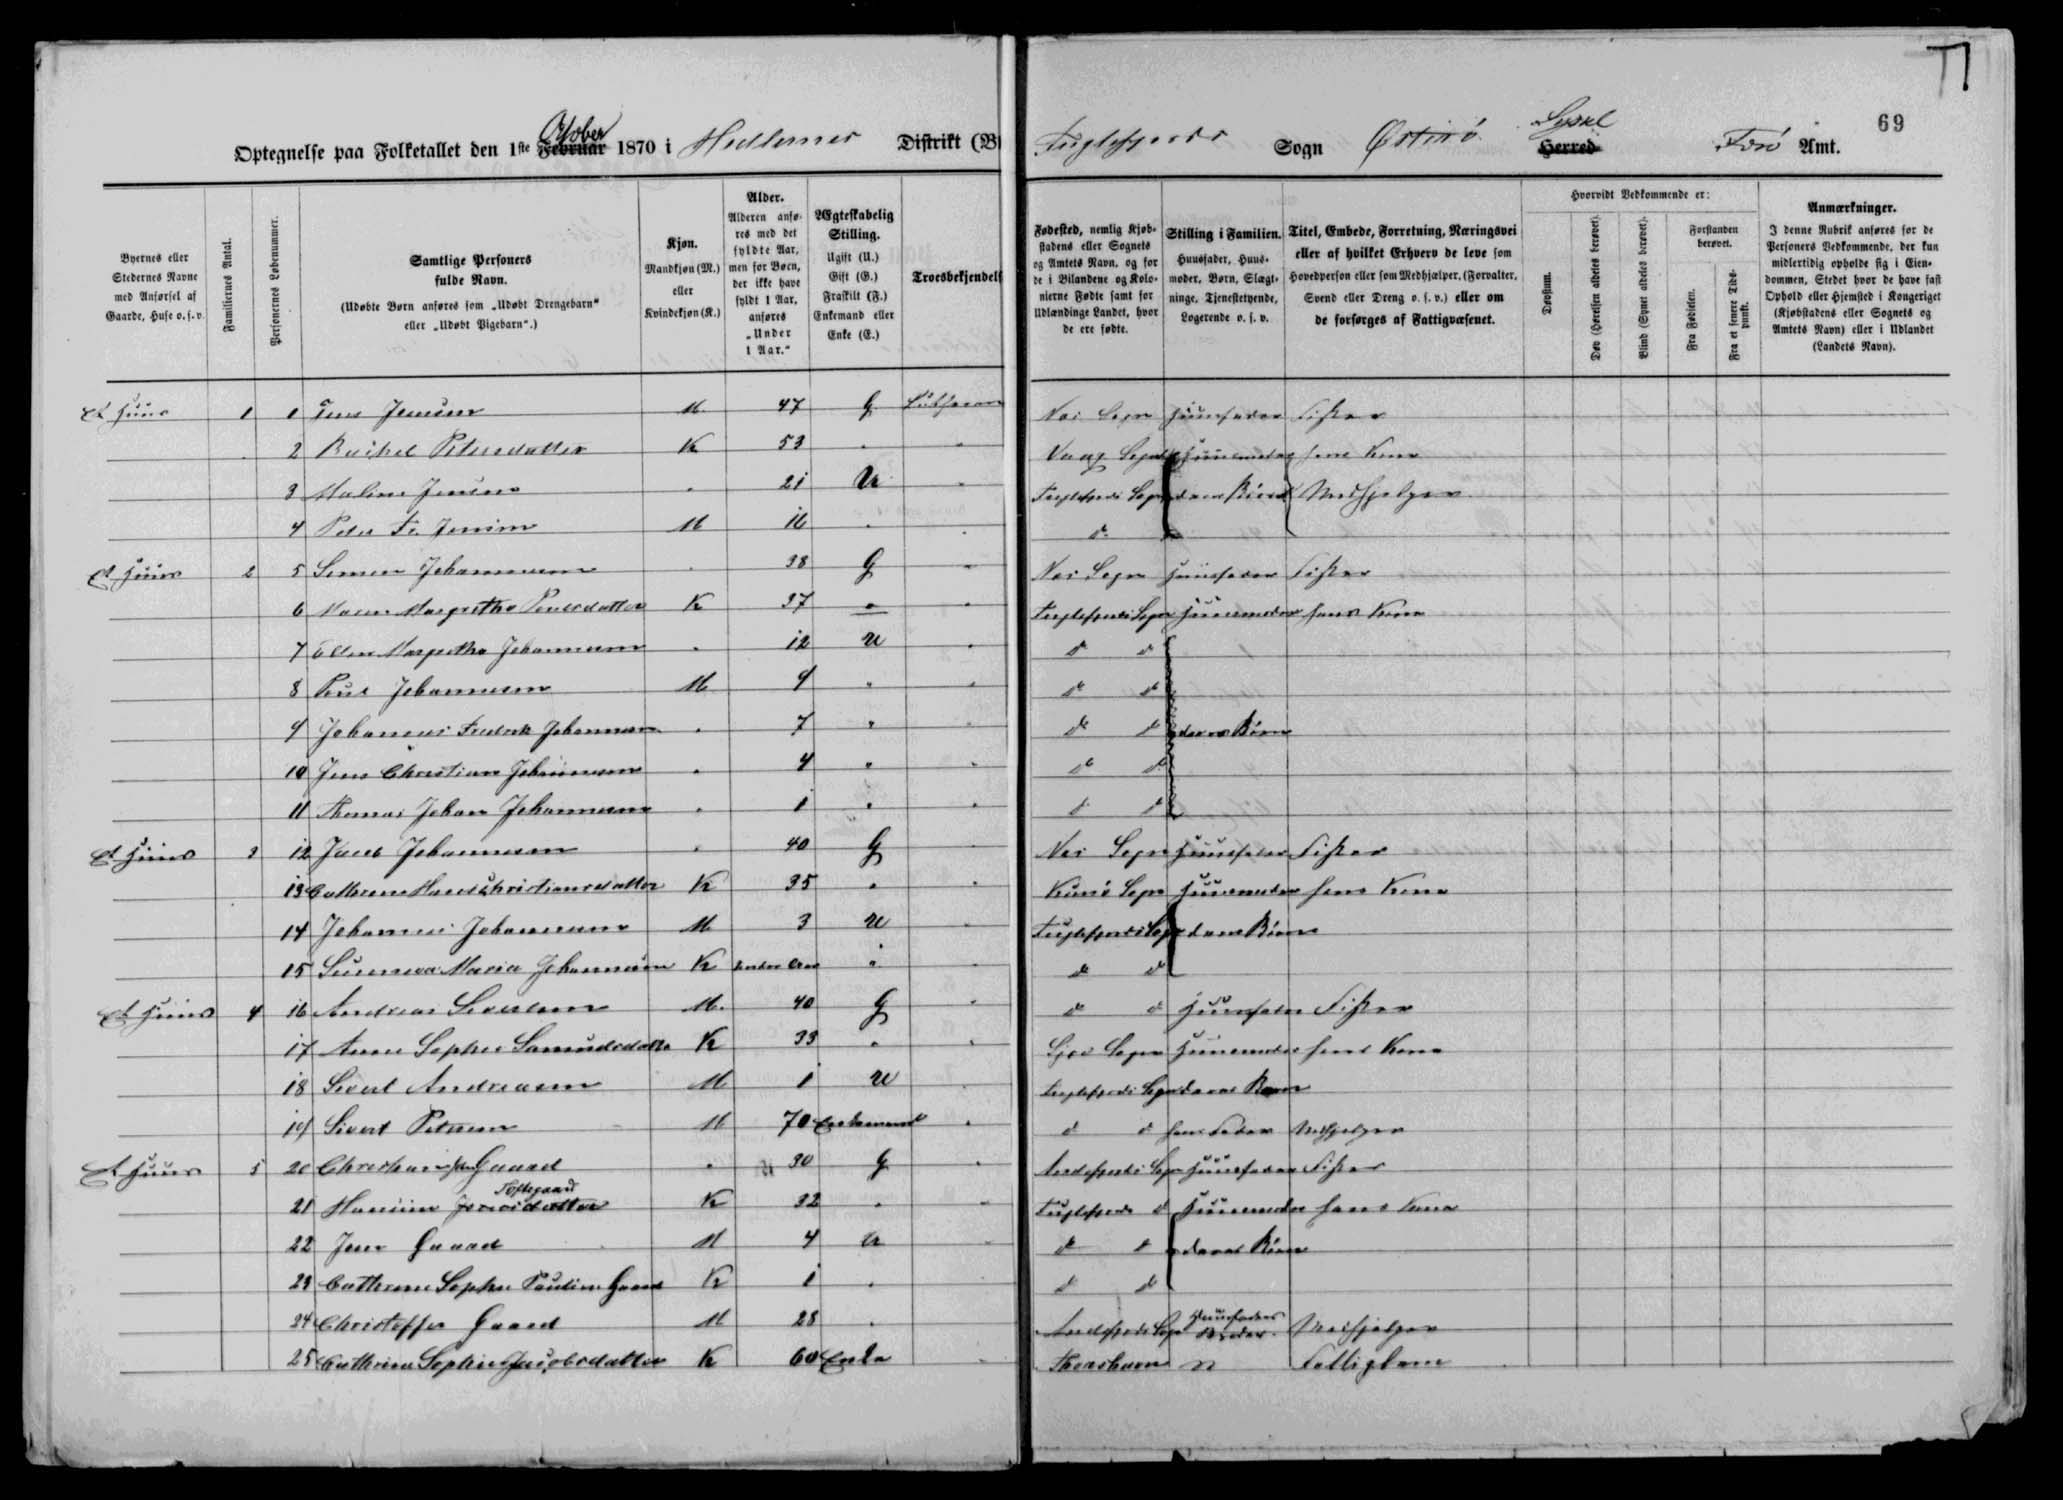 69
Optegnelse paa Folketallet den 1ste October Februar 1870 i Hellernes Distrikt (B
Fuglefjords Sogn Østerø Syssel Herred Færø Amt.
Byernes eller Stedernes Navne med Anførsel af Gaarde, Huse o. s. v.
Familiernes Antal.
Personernes Løbenummer.
Samtlige Personers fulde Navn.
(Udøbte Børn anføres som „Udøbt Drengebarn" eller „Udøbt Pigebarn".)
Kjøn.
Mandkjøn (M.) eller Kvindekjøn (K.)
Alder.
Alderen anføres med det fyldte Aar, men for Børn, der ikke have fyldt 1 Aar, anføres „Under 1 Aar."
Ægteskabelig Stilling.
Ugift (U.)
Gift (G.)
Fraskilt (F.)
Enkemand eller Enke (E.)
Troesbekjendels
Fødested, nemlig Kjøbstadens eller Sognets og Amtets Navn, og for de i Bilandene og Kolonierne Fødte samt for Udlændinge Landet, hvor de ere fødte.
Stilling i Familien.
Huusfader, Huusmoder, Børn, Slægtninge, Tjenestetyende, Logerende o. s. v.
Titel, Embede, Forretning, Næringsvei eller af hvilket Erhverv de leve som Hovedperson eller som Medhjælper, (Forvalter, Svend eller Dreng o. s. v.) eller om de forsørges af Fattigvæsenet.
Hvorvidt Vedkommende er:
Døvstum.
Døv (Hørelsen aldeles berøvet).
Blind (Synet aldeles berøvet).
Forstanden berøvet.
Fra Fødselen.
Fra et senere Tidspunkt.
Anmærkninger.
I denne Rubrik anføres for de Personers Vedkommende, der kun midlertidig opholde sig i Eiendommen, Stedet hvor de have fast Ophold eller Hjemsted i Kongeriget (Kjøbstadens eller Sognets og Amtets Navn) eller i Udlandet (Landets Navn).
Et Huus 1 1 Jens Jensen M 47 G Luthersk Næs Sogn Huusfader Fisker
2 Rachel Petersdatter K 53 " " Vaag Sogn Huusmoder hans Kone
3 Maline Jensen " 21 U " Fuglefjords Sogn deres Børn Medhjelper
4 Peter Fr. Jensen M 16 " " do
Et Huus 2 5 Simon Johannesen " 38 G " Næs Sogn Huusfader Fisker
6 Maren Margretha Poulsdatter K 37 " " Fuglefjords Sogn Huusmoder hans Kone
7 Ellen Margretha Johannesen " 12 U " do do
8 Poul Johannesen M 9 " " do do
9 Johannes Fredrik Johannesen " 7 " " do do deres Børn
10 Jens Christian Johannesen " 4 " " do do
11 Thomas Johan Johannesen " 1 " " do do
Et Huus 3 12 Jacob Johannesen " 40 G " Næs Sogn Huusfader Fisker
13 Cathrine Hanschristiansdatter K 35 " Kunø Sogn Huusmoder hans Kone
14 Johannes Johannesen M 3 U " Fuglefjords Sogn deres Børn
15 Sunneva Maria Johannesen K Under 1 Aar " " do do
Et Huus 4 16 Andreas Sivertsen M. 40 G " do do Huusfader Fisker
17 Anne Sophie Samuelsdatter K 33 " " Gjov Sogn Huusmoder hans Kone
18 Sivert Andreasen M 1 U " Fuglefjords Sogn deres Barn
19 Sivert Petersen M 70 Enkemand " do do hans Fader Medhjelper
Et Huus 5 20 Christian Gaard " 30 G " Andefjords Sogn Huusfader Fisker
21 Hansine Joensdatter Toftegaard K 32 " " Fuglefjords do Huusmoder hans Kone
22 Jens Gaard M 4 U " do do deres Børn
23 Cathrine Sophie Pauline Gaard K 1 " " do do
24 Christoffer Gaard M 28 " Andefjords Sogn Huusfaders Broder Medhjelper
25 Cathrine Sophie Jacobsdatter K 60 Enke " Thorshavn Fattiglem